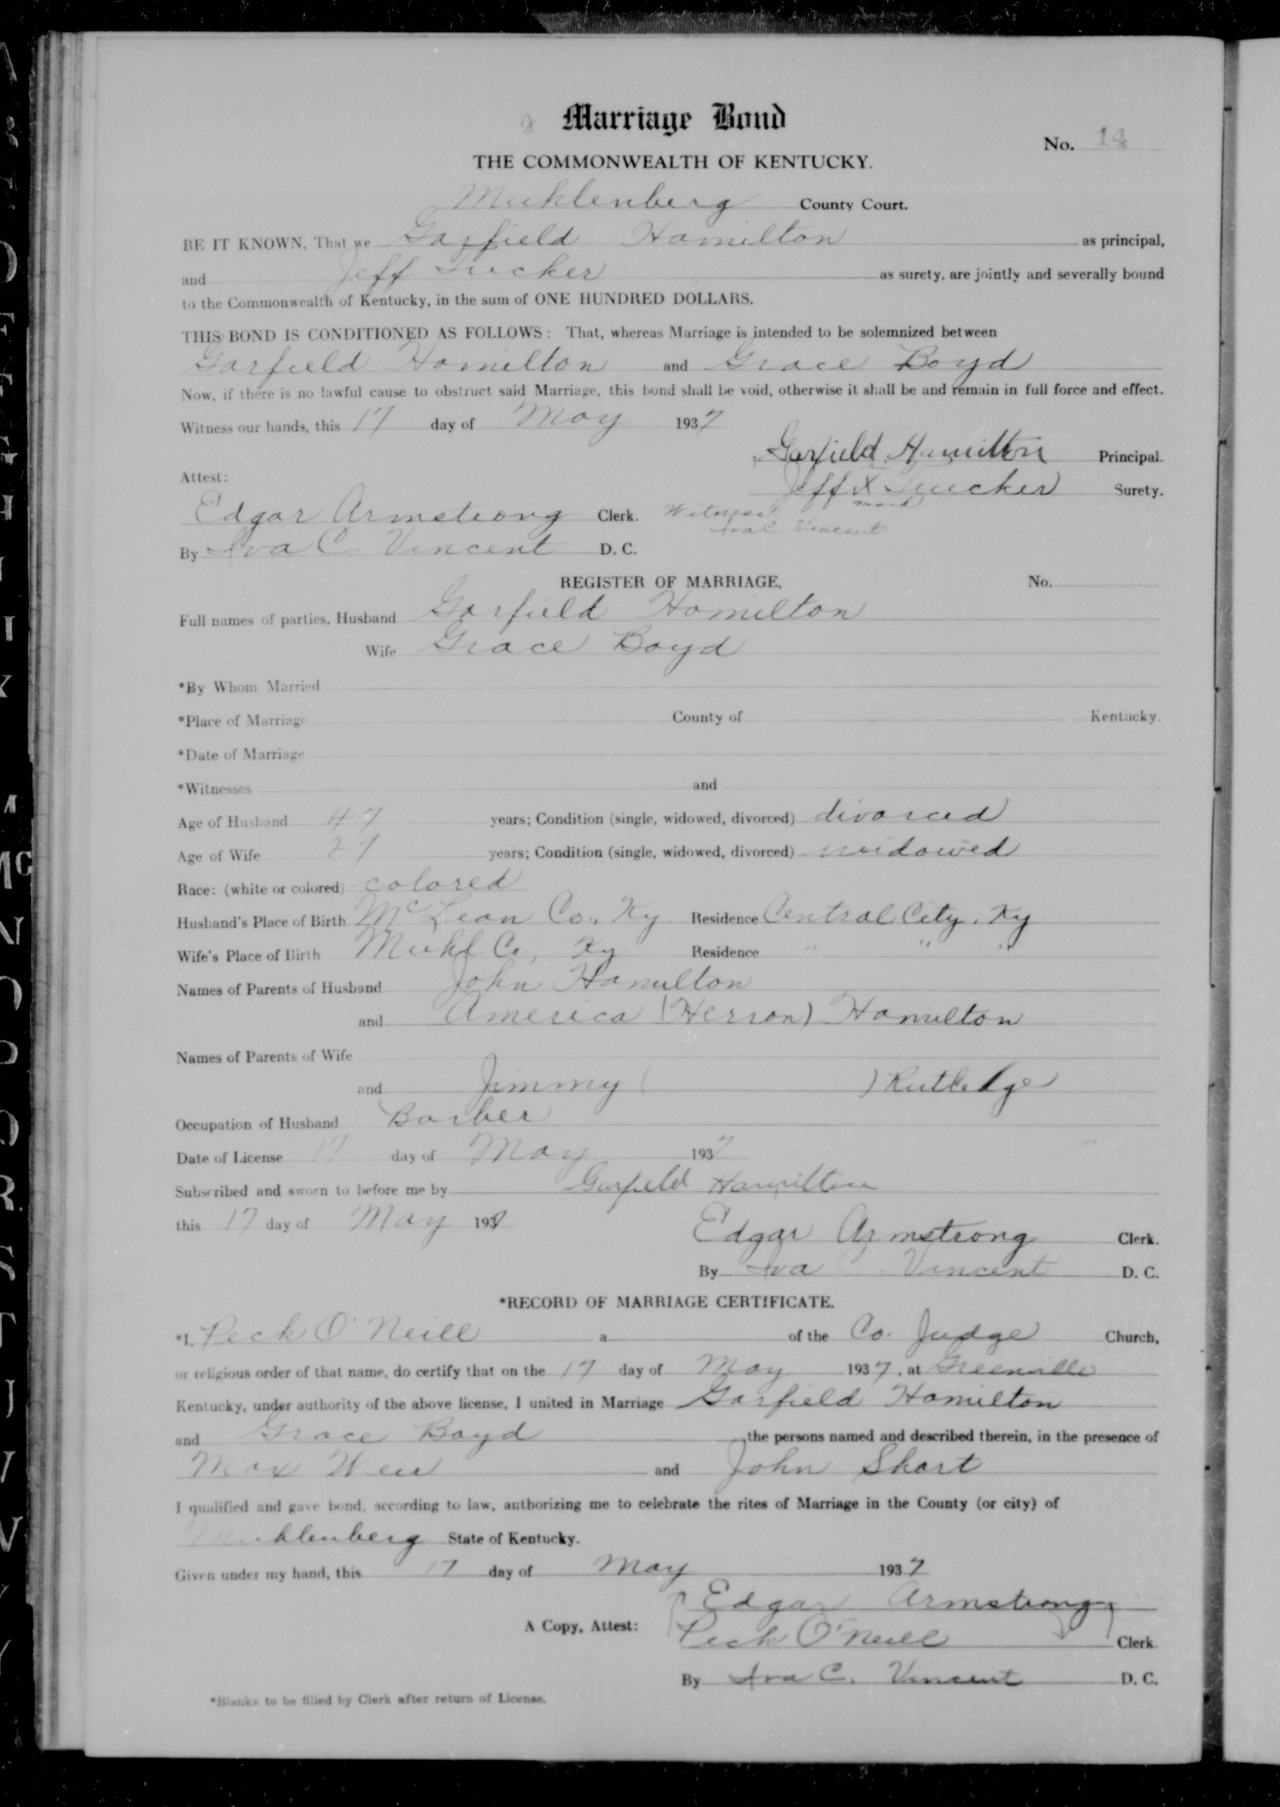 Marriage Bond
No. 14
THE COMMONWEALTH OF KENTUCKY.
Muhlenberg County Court.
BE IT KNOWN, That we Garfield Hamilton as principal,
and Jeff Tucker as surety, are jointly and severally bound
to the Commonwealth of Kentucky, in the sum of ONE HUNDRED DOLLARS.
THIS BOND IS CONDITIONED AS FOLLOWS: That, whereas Marriage is intended to be solemnized between
Garfield Hamilton and Grace Boyd
Now, if there is no lawful cause to obstruct said Marriage, this bond shall be void, otherwise it shall be and remain in full force and effect.
Witness our hands, this 17 day of May 1937
Garfield Hamilton Principal.
Attest: Jeff X Tucker Surety.
mark
Edgar Armstrong Clerk. Witness
Iva C. Vincent
By Iva C. Vincent D. C.
REGISTER OF MARRIAGE, No.
Full names of parties, Husband Garfield Hamilton
Wife Grace Boyd
*By Whom Married
*Place of Marriage County of Kentucky.
*Date of Marriage
*Witnesses and
Age of Husband 47 years; Condition (single, widowed, divorced) divorced
Age of Wife 29 years; Condition (single, widowed, divorced) widowed
Race: (white or colored) colored
Husband's Place of Birth McLean Co., Ky Residence Central City, Ky
Wife's Place of Birth Muhl. Co., Ky Residence " " "
Names of Parents of Husband John Hamilton
and America (Herron) Hamilton
Names of Parents of Wife
and Jimmy ( ) Rutledge
Occupation of Husband Barber
Date of License 17 day of May 1937
Subscribed and sworn to before me by Garfield Hamilton
this 17 day of May 1937
Edgar Armstrong Clerk.
By Iva C. Vincent D. C.
*RECORD OF MARRIAGE CERTIFICATE.
*I, Peck O'Neill a of the Co. Judge Church,
or religious order of that name, do certify that on the 17 day of May 1937, at Greenville
Kentucky, under authority of the above license, I united in Marriage Garfield Hamilton
and Grace Boyd the persons named and described therein, in the presence of
Max Weir and John Short
I qualified and gave bond, according to law, authorizing me to celebrate the rites of Marriage in the County (or city) of
Muhlenberg State of Kentucky.
Given under my hand, this 17 day of May 1937
Edgar Armstrong
A Copy, Attest: Peck O'Neill Clerk
By Iva C. Vincent D. C.
*Blanks to be filled by Clerk after return of License.